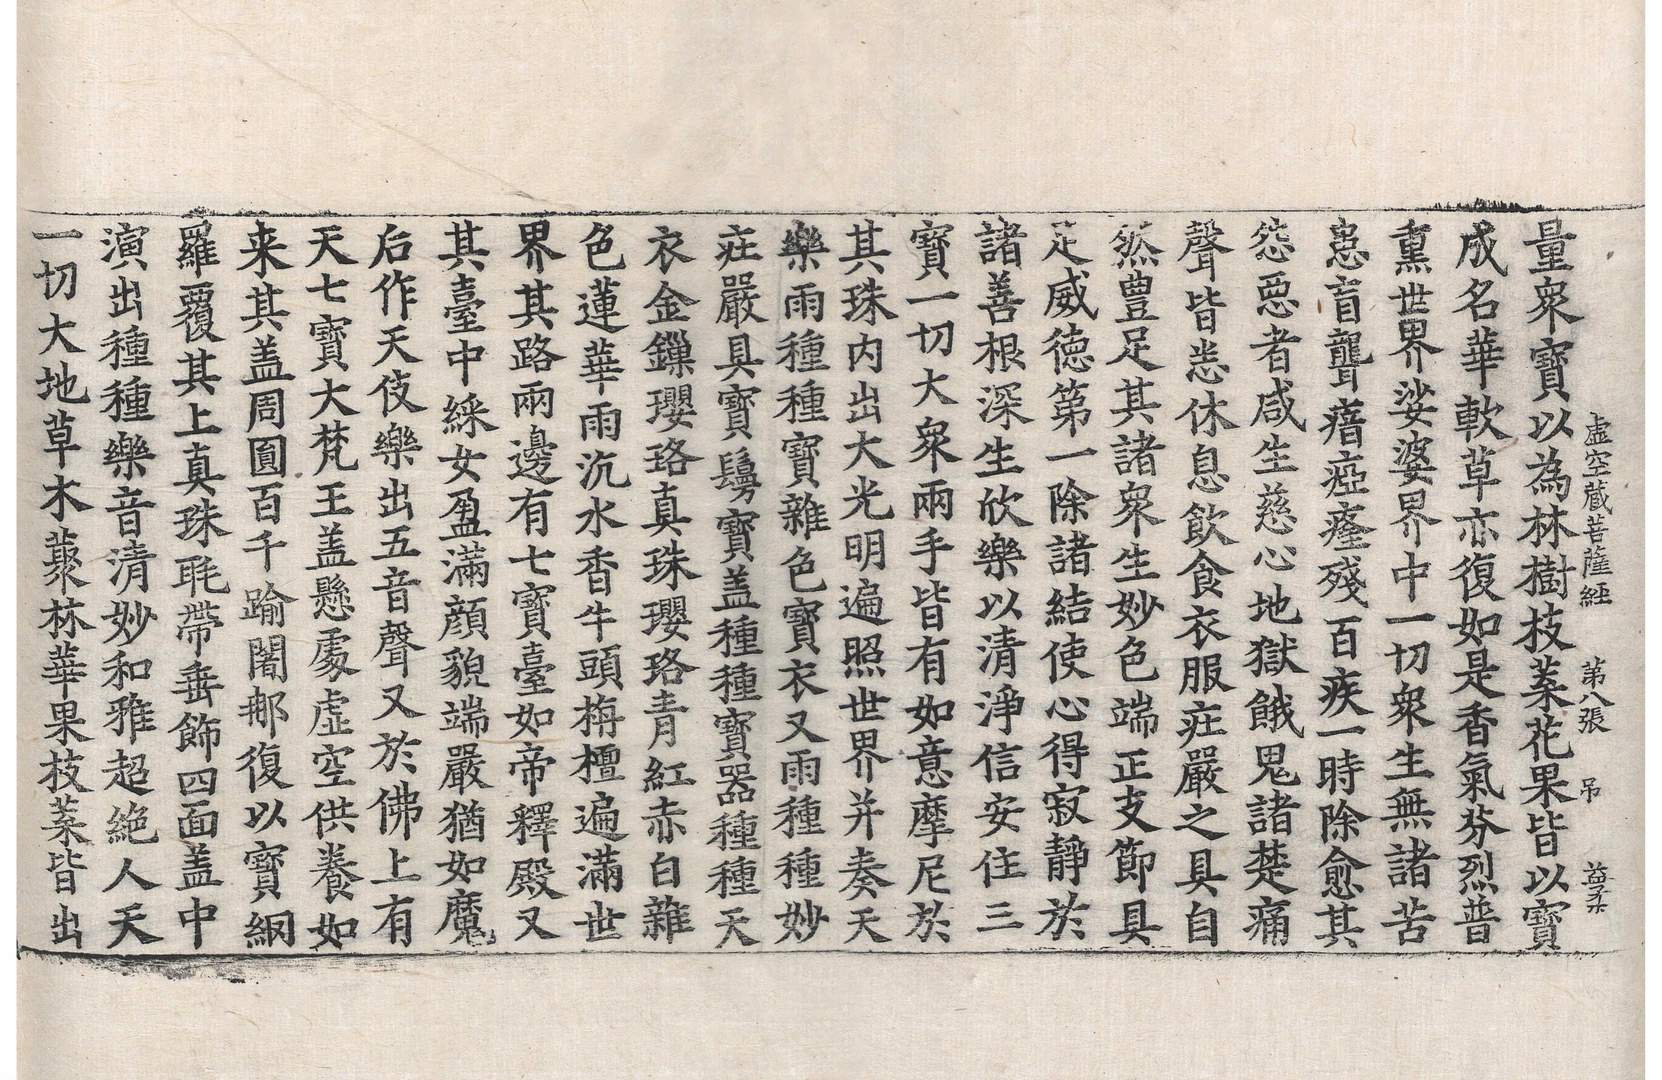 虛空藏菩薩經　第八張　吊　益柔
量衆寶以為林樹枝葉花果皆以寶
成名華軟草亦復如是香氣芬烈普
熏世界娑婆界中一切衆生無諸苦
患盲聾瘖瘂癃殘百疾一時除愈其
怨惡者咸生慈心地獄餓鬼諸楚痛
聲皆悉休息飲食衣服莊嚴之具自
然豊足其諸衆生妙色端正支節具
足威德第一除諸結使心得寂靜於
諸善根深生欣樂以清淨信安住三
寶一切大衆兩手皆有如意摩尼於
其珠內出大光明遍照世界并奏天
樂雨種種寶雜色寶衣又雨種種妙
莊嚴具寶鬘寶盖種種寶器種種天
衣金鏁瓔珞真珠瓔珞青紅赤白雜
色蓮華雨沉水香牛頭栴檀遍滿世
界其路兩邊有七寶臺如帝釋殿又
其臺中婇女盈滿顏貌端嚴猶如魔
后作天伎樂出五音聲又於佛上有
天七寶大梵王盖懸處虛空供養如
来其盖周圓百千踰闍那復以寶網
羅覆其上真珠毦帶垂飾四面盖中
演出種種樂音清妙和雅超絕人天
一切大地草木藂林華果枝葉皆出